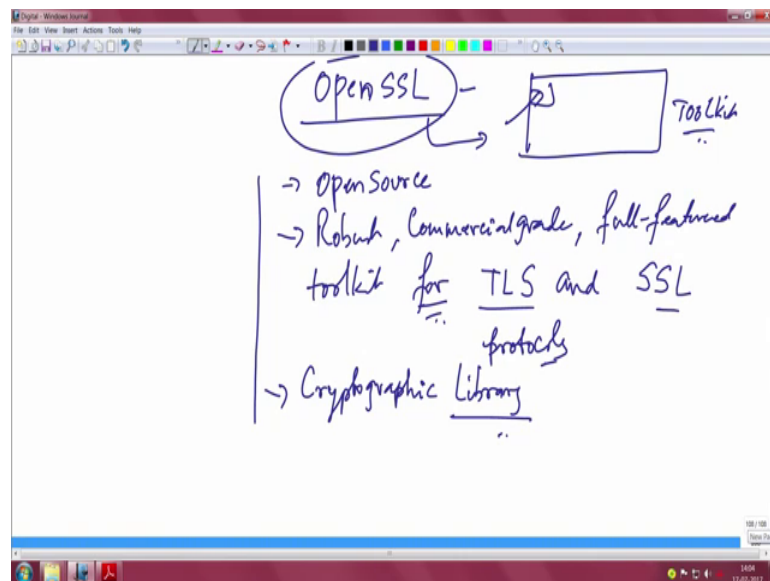 Digital - Windows Journal
File Edit View Insert Actions Tools Help
OpenSSL -
Toolkit
-> OpenSource
-> Robush, Commercialgrade, full-featured
toolkit for TLS and SSL
protocols
-> Cryptographic Library
108 / 108
New Pa
14:04